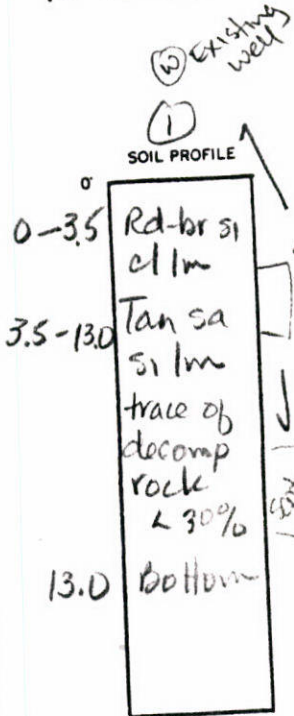 W Existing
well
1
SOIL PROFILE
0
0-3.5 Rd-br si
cl lm
3.5-13.0 Tan sa
si lm
trace of
decomp
rock
< 30%
13.0 Bottom